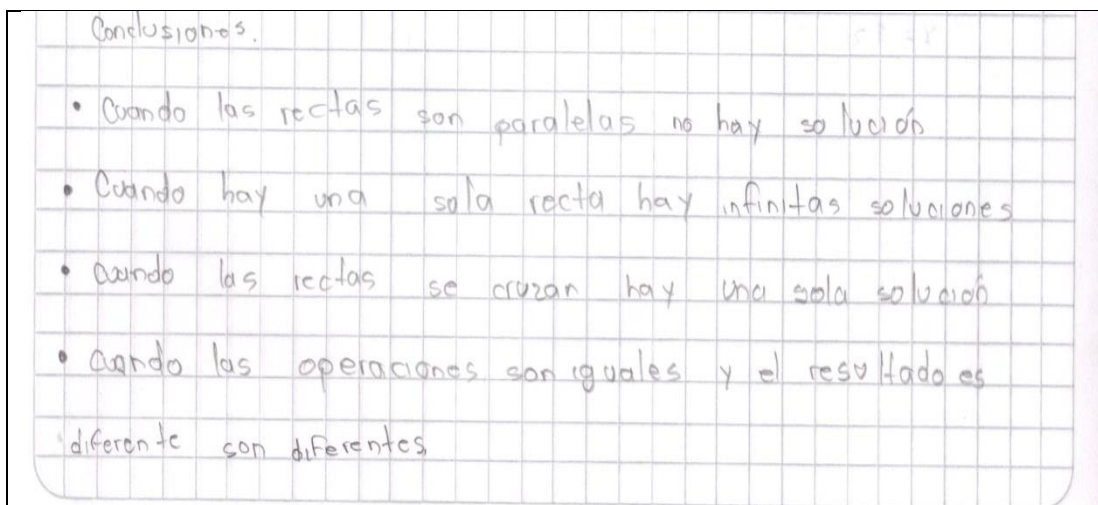 Conclusiones.
• Cuando las rectas son paralelas no hay solución
• Cuando hay una sola recta hay infinitas soluciones
• Cuando las rectas se cruzan hay una sola solución
• Cuando las operaciones son iguales y el resultado es
diferente son diferentes